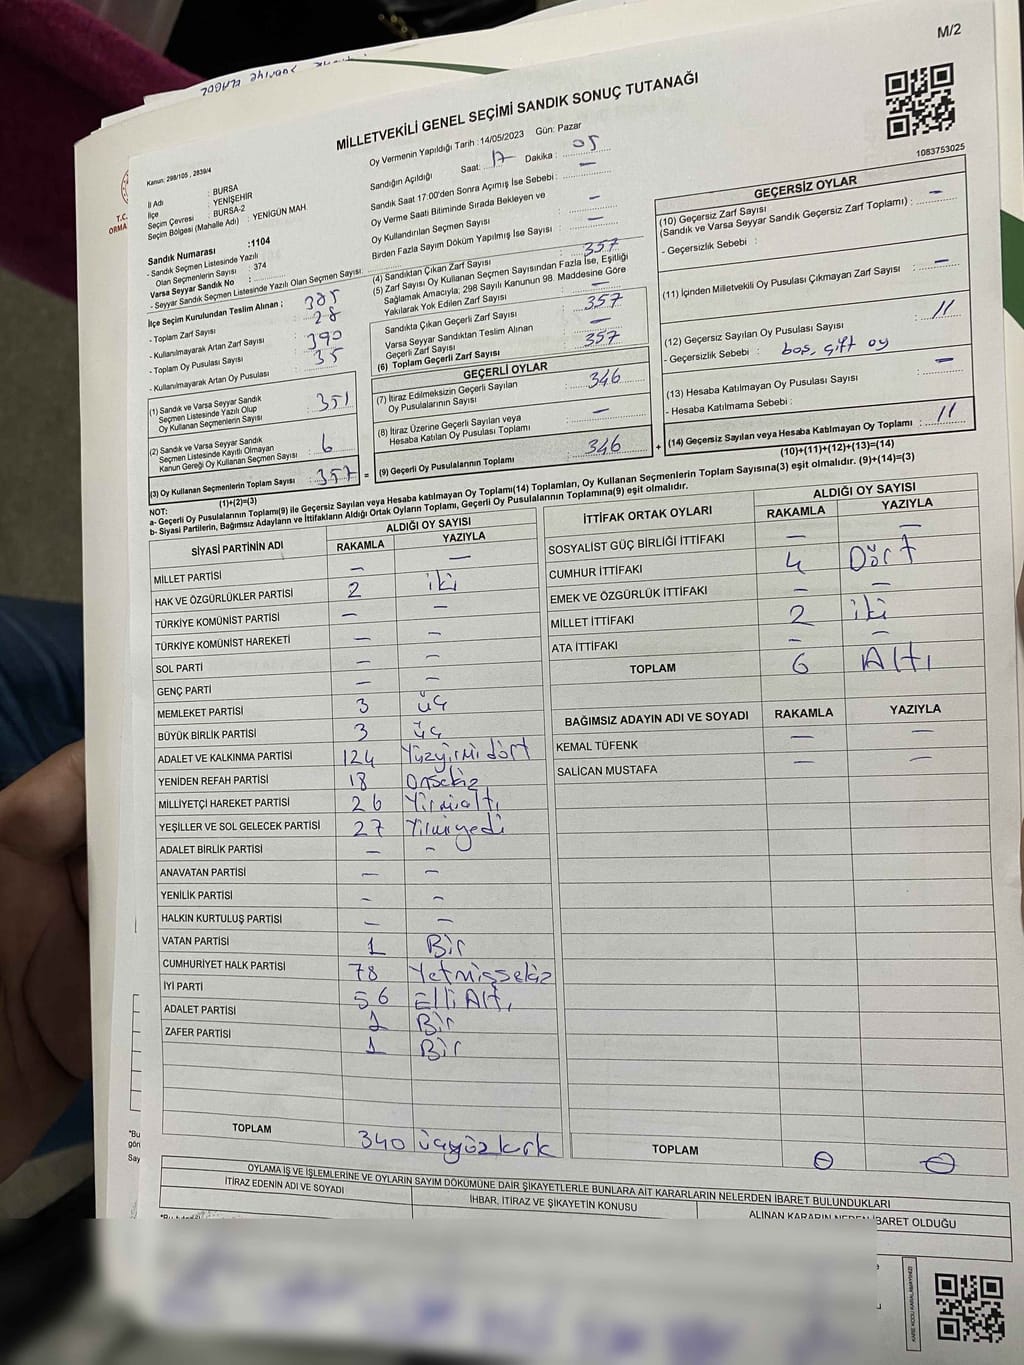 M/2
MİLLETVEKİLİ GENEL SEÇİMİ SANDIK SONUÇ TUTANAĞI
1083753025
Kanun: 298/105 , 2839/4
T.C.
İl Adı : BURSA
İlçe : YENİŞEHİR
Seçim Çevresi : BURSA-2
Seçim Bölgesi (Mahalle Adı) : YENİGÜN MAH
Sandık Numarası :1104
- Sandık Seçmen Listesinde Yazılı
Olan Seçmenlerin Sayısı : 374
Varsa Seyyar Sandık No :
- Seyyar Sandık Seçmen Listesinde Yazılı Olan Seçmen Sayısı:
İlçe Seçim Kurulundan Teslim Alınan ;
- Toplam Zarf Sayısı : 385
- Kullanılmayarak Artan Zarf Sayısı : 28
- Toplam Oy Pusulası Sayısı : 390
- Kullanılmayarak Artan Oy Pusulası : 35
(1) Sandık ve Varsa Seyyar Sandık
Seçmen Listesinde Yazılı Olup
Oy Kullanan Seçmenlerin Sayısı : 351
(2) Sandık ve Varsa Seyyar Sandık
Seçmen Listesinde Kayıtlı Olmayan
Kanun Gereği Oy Kullanan Seçmen Sayısı : 6
(3) Oy Kullanan Seçmenlerin Toplam Sayısı : 357
(1)+(2)=(3)
Oy Vermenin Yapıldığı Tarih :14/05/2023 Gün: Pazar
Sandığın Açıldığı Saat: 17 Dakika : 05
Sandık Saat 17:00'den Sonra Açımış İse Sebebi : —
Oy Verme Saati Bitiminde Sırada Bekleyen ve
Oy Kullandırılan Seçmen Sayısı —
Birden Fazla Sayım Döküm Yapılmış İse Sayısı : —
(4) Sandıktan Çıkan Zarf Sayısı : 357
(5) Zarf Sayısı Oy Kullanan Seçmen Sayısından Fazla İse, Eşitliği
Sağlamak Amacıyla, 298 Sayılı Kanunun 98. Maddesine Göre
Yakılarak Yok Edilen Zarf Sayısı : —
Sandıkta Çıkan Geçerli Zarf Sayısı : 357
Varsa Seyyar Sandıktan Teslim Alınan
Geçerli Zarf Sayısı : —
(6) Toplam Geçerli Zarf Sayısı : 357
GEÇERLİ OYLAR
(7) İtiraz Edilmeksizin Geçerli Sayılan
Oy Pusulalarının Sayısı : 346
(8) İtiraz Üzerine Geçerli Sayılan veya
Hesaba Katılan Oy Pusulası Toplamı : —
= (9) Geçerli Oy Pusulalarının Toplamı : 346
GEÇERSİZ OYLAR
(10) Geçersiz Zarf Sayısı
(Sandık ve Varsa Seyyar Sandık Geçersiz Zarf Toplamı) : —
- Geçersizlik Sebebi :
(11) İçinden Milletvekili Oy Pusulası Çıkmayan Zarf Sayısı : —
(12) Geçersiz Sayılan Oy Pusulası Sayısı : 11
- Geçersizlik Sebebi : boş, çift oy
(13) Hesaba Katılmayan Oy Pusulası Sayısı : —
- Hesaba Katılmama Sebebi :
+ (14) Geçersiz Sayılan veya Hesaba Katılmayan Oy Toplamı : 11
(10)+(11)+(12)+(13)=(14)
NOT:
a- Geçerli Oy Pusulalarının Toplamı(9) ile Geçersiz Sayılan veya Hesaba katılmayan Oy Toplamı(14) Toplamları, Oy Kullanan Seçmenlerin Toplam Sayısına(3) eşit olmalıdır. (9)+(14)=(3)
b- Siyasi Partilerin, Bağımsız Adayların ve İttifakların Aldığı Ortak Oyların Toplamı, Geçerli Oy Pusulalarının Toplamına(9) eşit olmalıdır.
SİYASİ PARTİNİN ADI ALDIĞI OY SAYISI
RAKAMLA YAZIYLA
MİLLET PARTİSİ — —
HAK VE ÖZGÜRLÜKLER PARTİSİ 2 iki
TÜRKİYE KOMÜNİST PARTİSİ — —
TÜRKİYE KOMÜNİST HAREKETİ — —
SOL PARTİ — —
GENÇ PARTİ — —
MEMLEKET PARTİSİ 3 üç
BÜYÜK BİRLİK PARTİSİ 3 üç
ADALET VE KALKINMA PARTİSİ 124 Yüzyirmi dört
YENİDEN REFAH PARTİSİ 18 Onsekiz
MİLLİYETÇİ HAREKET PARTİSİ 26 Yirmialtı
YEŞİLLER VE SOL GELECEK PARTİSİ 27 Yirmiyedi
ADALET BİRLİK PARTİSİ — —
ANAVATAN PARTİSİ — —
YENİLİK PARTİSİ — —
HALKIN KURTULUŞ PARTİSİ — —
VATAN PARTİSİ 1 Bir
CUMHURİYET HALK PARTİSİ 78 Yetmişsekiz
İYİ PARTİ 56 Elli Altı
ADALET PARTİSİ 1 Bir
ZAFER PARTİSİ 1 Bir
TOPLAM 340 üçyüzkırk
İTTİFAK ORTAK OYLARI ALDIĞI OY SAYISI
RAKAMLA YAZIYLA
SOSYALİST GÜÇ BİRLİĞİ İTTİFAKI — —
CUMHUR İTTİFAKI 4 Dört
EMEK VE ÖZGÜRLÜK İTTİFAKI — —
MİLLET İTTİFAKI 2 iki
ATA İTTİFAKI — —
TOPLAM 6 Altı
BAĞIMSIZ ADAYIN ADI VE SOYADI RAKAMLA YAZIYLA
KEMAL TÜFENK — —
SALİCAN MUSTAFA — —
TOPLAM 0 0
OYLAMA İŞ VE İŞLEMLERİNE VE OYLARIN SAYIM DÖKÜMÜNE DAİR ŞİKAYETLERLE BUNLARA AİT KARARLARIN NELERDEN İBARET BULUNDUKLARI
İTİRAZ EDENİN ADI VE SOYADI İHBAR, İTİRAZ VE ŞİKAYETİN KONUSU ALINAN KARARIN NEDEN İBARET OLDUĞU